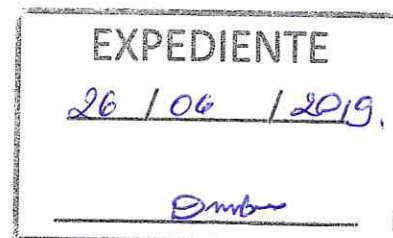 EXPEDIENTE
26 / 06 / 2019.